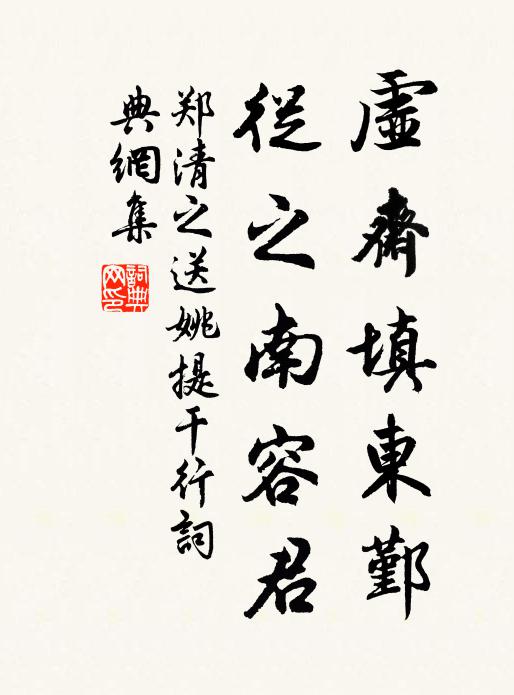 虛齋填東鄞
從之南容君
郑清之送姚提干行詞
典網集
詞典网印